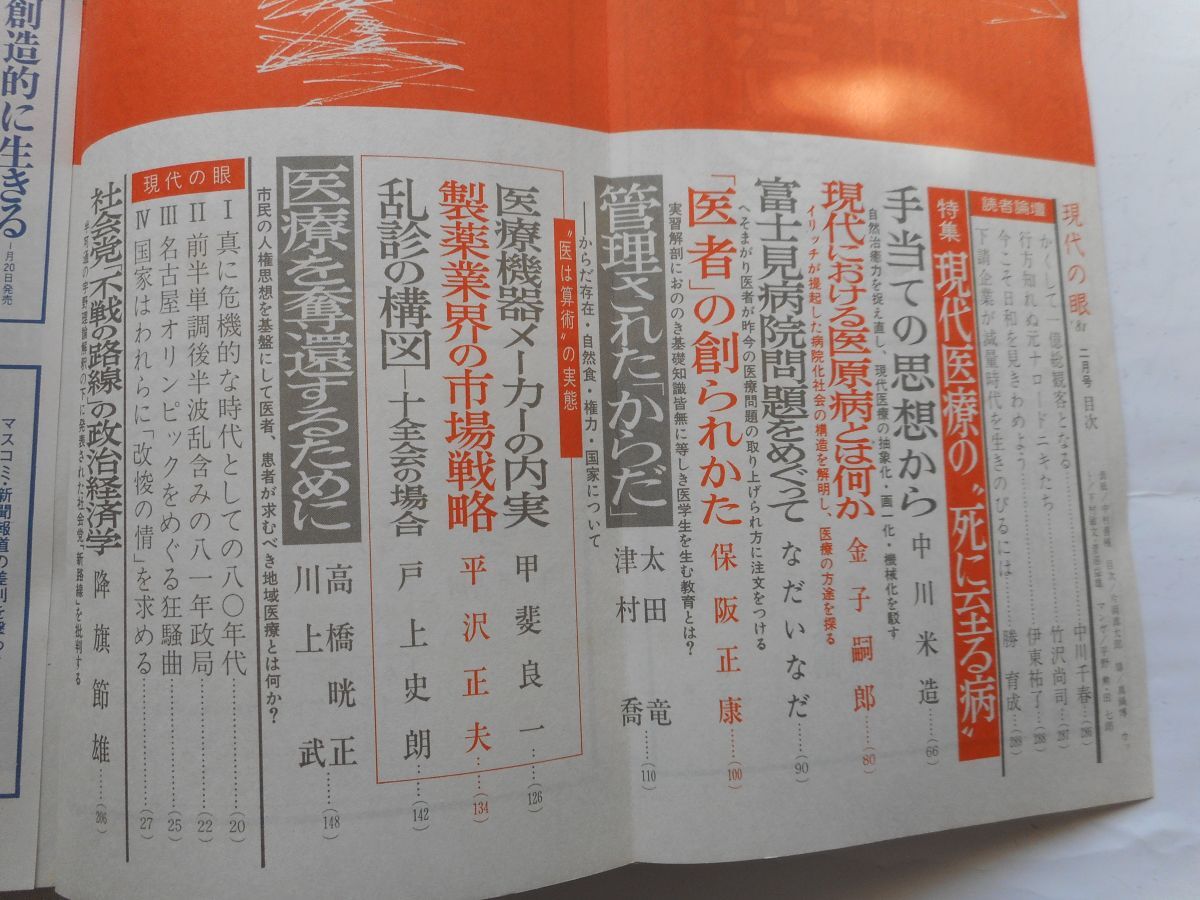 現代の眼
二月号 目次
読者論壇
かくして一億総観客となる………中川千春…(286)
行方知れぬ元十ロードニキたち………竹沢尚司…(287)
今こそ日和を見きわめよう………伊東祐了…(288)
下請企業が減量時代を生きのびるには………勝 育成…(289)
特集 現代医療の〝死に至る病〟
手当ての思想から 中川米造……(66)
自然治癒力を捉え直し、現代医療の抽象化・画一化・機械化を駁す
現代における医原病とは何か 金子嗣郎……(80)
イリッチが提起した病院化社会の構造を解明し、医療の方途を探る
富士見病院問題をめぐって なだいなだ……(90)
へそまがり医者が昨今の医療問題の取り上げられ方に注文をつける
「医者」の創られかた 保阪正康……(100)
実習解剖におののき基礎知識皆無に等しき医学生を生む教育とは?
管理された「からだ」 太田 竜 津村 喬……(110)
——からだ存在・自然食・権力・国家について
〝医は算術〟の実態
医療機器メーカーの内実 甲斐良一……(126)
製薬業界の市場戦略 平沢正夫……(134)
乱診の構図—十全会の場合 戸上史朗……(142)
医療を奪還するために 高橋晄正 川上 武……(148)
市民の人権思想を基盤にして医者、患者が求むべき地域医療とは何か?
現代の眼
Ⅰ 真に危機的な時代としての八〇年代………(20)
Ⅱ 前半単調後半波乱含みの八一年政局………(22)
Ⅲ 名古屋オリンピックをめぐる狂騒曲………(25)
Ⅳ 国家はわれらに「改悛の情」を求める………(27)
社会党〝不戦の路線〟の政治経済学 降旗節雄……(206)
宇野理論解釈の下に発表された社会党「新路線」を批判する
創造的に生きる
—月20日発売
マスコミ・新聞報道の差別を撃つ